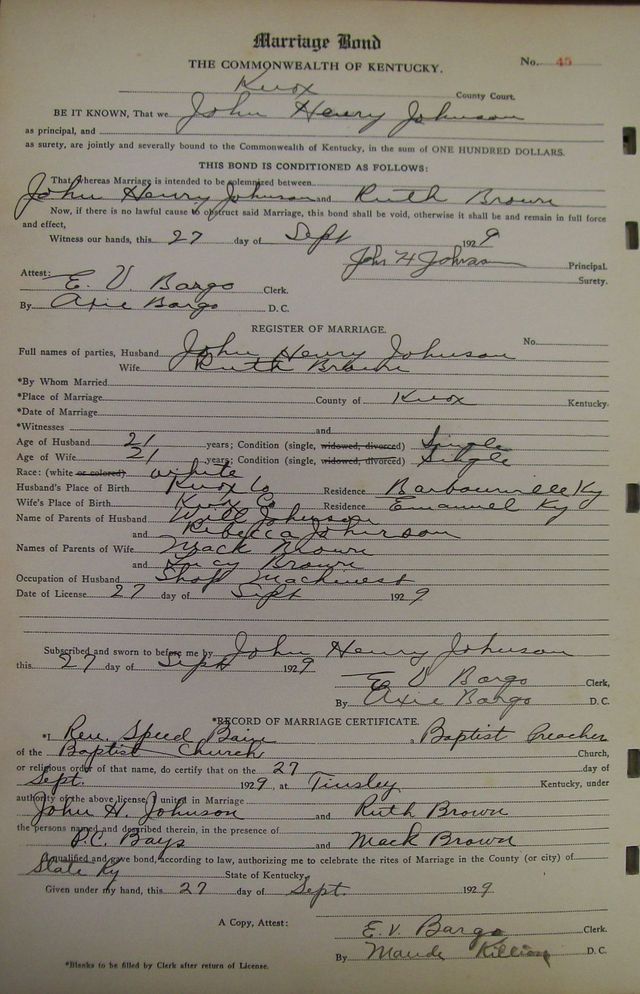 Marriage Bond
THE COMMONWEALTH OF KENTUCKY.
No. 45
Knox County Court.
BE IT KNOWN, That we John Henry Johnson
as principal, and
as surety, are jointly and severally bound to the Commonwealth of Kentucky, in the sum of ONE HUNDRED DOLLARS.
THIS BOND IS CONDITIONED AS FOLLOWS:
That whereas Marriage is intended to be solemnized between
John Henry Johnson and Ruth Brown
Now, if there is no lawful cause to obstruct said Marriage, this bond shall be void, otherwise it shall be and remain in full force
and effect,
Witness our hands, this 27 day of Sept 1929
John H Johnson Principal.
Surety.
Attest: E. V. Bargo Clerk.
By Axie Bargo D. C.
REGISTER OF MARRIAGE.
No.
Full names of parties, Husband John Henry Johnson
Wife Ruth Brown
*By Whom Married
*Place of Marriage County of Knox Kentucky
*Date of Marriage
*Witnesses and
Age of Husband 21 years; Condition (single, widowed, divorced) Single
Age of Wife 21 years; Condition (single, widowed, divorced) Single
Race: (white or colored) white
Husband's Place of Birth Knox Co Residence Barbourville Ky
Wife's Place of Birth Knox Co Residence Emanuel Ky
Name of Parents of Husband Will Johnson
and Rebecca Johnson
Names of Parents of Wife Mack Brown
and Lucy Brown
Occupation of Husband Shop Machinest
Date of License 27 day of Sept 1929
Subscribed and sworn to before me by John Henry Johnson
this 27 day of Sept 1929
E V Bargo Clerk,
By Axie Bargo D. C.
*RECORD OF MARRIAGE CERTIFICATE.
*I Rev. Speed Bain, Baptist Preacher
of the Baptist Church Church,
or religious order of that name, do certify that on the 27 day of
Sept. 1929, at Tinsley Kentucky, under
authority of the above license, I united in Marriage
John H. Johnson and Ruth Brown
the persons named and described therein, in the presence of
P.C. Bays and Mack Brown
qualified and gave bond, according to law, authorizing me to celebrate the rites of Marriage in the County (or city) of
State Ky State of Kentucky.
Given under my hand, this 27 day of Sept. 1929.
A Copy, Attest: E. V. Bargo Clerk.
By Maude Killion D. C.
*Blanks to be filled by Clerk after return of License.